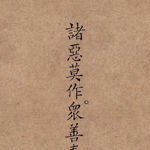 諸惡莫作。眾善